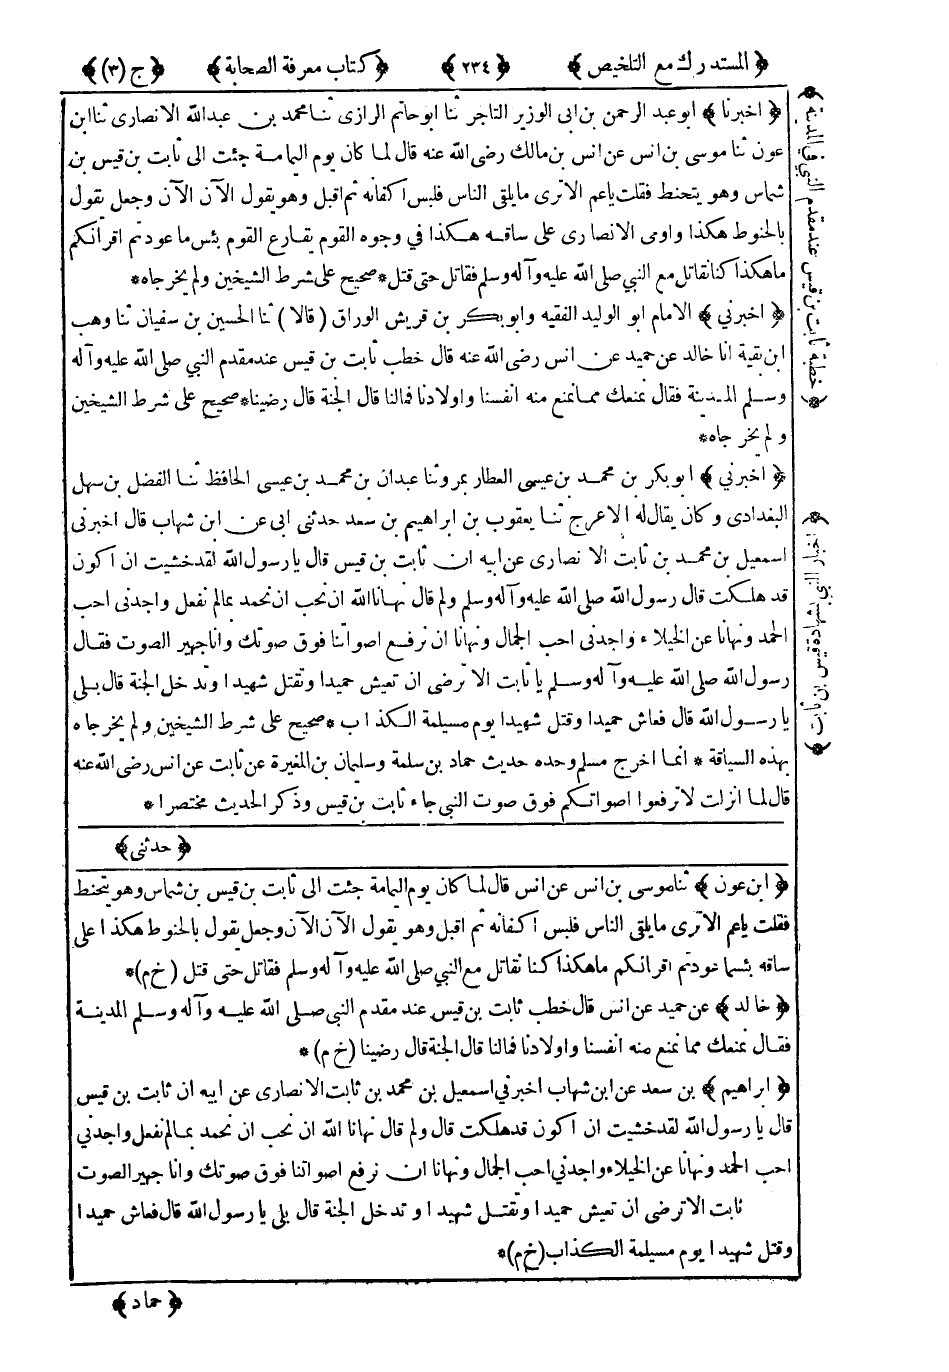 ﴿ المستدرك مع التلخيص ﴾ ﴿ ٢٣٤ ﴾ ﴿ كتاب معرفة الصحابة ﴾ ﴿ ج (٣) ﴾
﴿ اخبرنا ﴾ ابو عبد الرحمن بن ابى الوزير التاجر ثنا ابو حاتم الرازى ثنا محمد بن عبدالله الانصارى ثنا ابن
عون ثنا موسى بن انس عن انس بن مالك رضى الله عنه قال لما كان يوم اليمامة جئت الى ثابت بن قيس بن
شماس وهو يتحنط فقلت ياعم الاترى مايلقى الناس فلبس اكفانه ثم اقبل وهو يقول الآن الآن وجعل يقول
بالحنوط هكذا واومى الانصارى على ساقه هكذا في وجوه القوم يقارع القوم بئس ماعودتم اقرانكم
ماهكذا كنا نقاتل مع النبي صلى الله عليه وآله وسلم فقاتل حتى قتل * صحيح على شرط الشيخين ولم يخرجاه *
﴿ اخبرني ﴾ الامام ابو الوليد الفقيه وابو بكر بن قريش الوراق ( قالا ) ثنا الحسين بن سفيان ثنا وهب
ابن بقية انا خالد عن حميد عن انس رضى الله عنه قال خطب ثابت بن قيس عند مقدم النبي صلى الله عليه وآله
وسلم المدينة فقال نمنعك مما نمنع منه انفسنا واولادنا فمالنا قال الجنة قال رضينا * صحيح على شرط الشيخين
ولم يخرجاه *
﴿ اخبرني ﴾ ابو بكر بن محمد بن عيسى العطار بمرو ثنا عبدان بن محمد بن عيسى الحافظ ثنا الفضل بن سهل
البغدادى وكان يقال له الاعرج ثنا يعقوب بن ابراهيم بن سعد حدثنى ابى عن ابن شهاب قال اخبرنى
اسمعيل بن محمد بن ثابت الانصارى عن ابيه ان ثابت بن قيس قال يا رسول الله لقد خشيت ان اكون
قد هلكت قال رسول الله صلى الله عليه وآله وسلم ولم قال نهانا الله ان نحب ان نحمد بمالم نفعل واجدنى احب
الحمد ونهانا عن الخيلاء واجدنى احب الجمال ونهانا ان نرفع اصواتنا فوق صوتك وانا جهير الصوت فقال
رسول الله صلى الله عليه وآله وسلم يا ثابت الا ترضى ان تعيش حميدا وتقتل شهيدا وتدخل الجنة قال بلى
يا رسول الله قال فعاش حميدا وقتل شهيدا يوم مسيلمة الكذاب * صحيح على شرط الشيخين ولم يخرجاه
بهذه السياقة * انما اخرج مسلم وحده حديث حماد بن سلمة وسليمان بن المغيرة عن ثابت عن انس رضى الله عنه
قال لما انزلت لاترفعوا اصواتكم فوق صوت النبي جاء ثابت بن قيس وذكر الحديث مختصرا *
﴿ حدثنى ﴾
﴿ ابن عون ﴾ ثنا موسى بن انس عن انس قال لما كان يوم اليمامة جئت الى ثابت بن قيس بن شماس وهو يتحنط
فقلت ياعم الاترى مايلقى الناس فلبس اكفانه ثم اقبل وهو يقول الآن الآن وجعل يقول بالحنوط هكذا على
ساقه بئسما عودتم اقرانكم ماهكذا كنا نقاتل مع النبي صلى الله عليه وآله وسلم فقاتل حتى قتل ( خ م ) *
﴿ خالد ﴾ عن حميد عن انس قال خطب ثابت بن قيس عند مقدم النبى صلى الله عليه وآله وسلم المدينة
فقال نمنعك مما نمنع منه انفسنا واولادنا فمالنا قال الجنة قال رضينا ( خ م ) *
﴿ ابراهيم ﴾ بن سعد عن ابن شهاب اخبرني اسمعيل بن محمد بن ثابت الانصارى عن ابيه ان ثابت بن قيس
قال يا رسول الله لقد خشيت ان اكون قد هلكت قال ولم قال نهانا الله ان نحب ان نحمد بمالم نفعل واجدني
احب الحمد ونهانا عن الخيلاء واجدني احب الجمال ونهانا ان نرفع اصواتنا فوق صوتك وانا جهير الصوت
ثابت الاترضى ان تعيش حميدا وتقتل شهيدا وتدخل الجنة قال بلى يا رسول الله قال فعاش حميدا
وقتل شهيدا يوم مسيلمة الكذاب ( خ م ) *
﴿ حماد ﴾
﴿ خطبة ثابت بن قيس عند مقدم النبي في المدينة ﴾